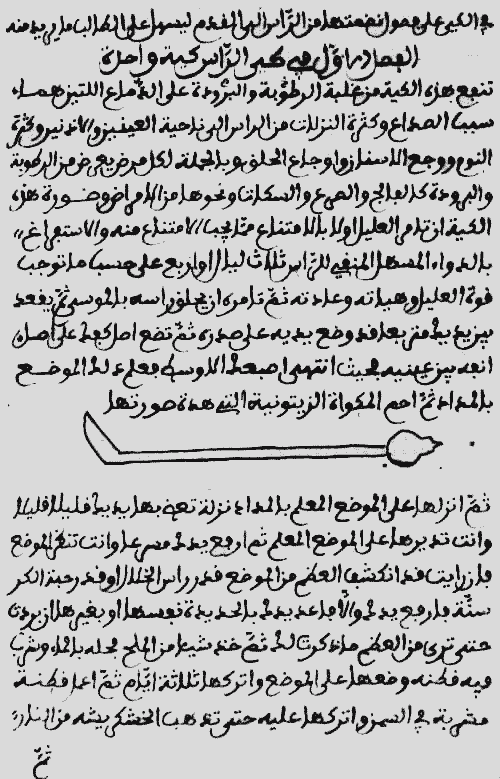 في الكي على فصول نضعتها من الرأس الى القدم ليسهل على الطالب ما يريد منه
الفصل الاول في كي الرأس كية واحدة
تنفع هذه الكية من غلبة الرطوبة والبرودة على الدماغ اللتين هما
سببا الصداع وكثرة النزلات من الراس الى ناحية العينين والاذنين وكثرة
النوم ووجع الاسنان واوجاع الحلق وبالجملة لكل مرض يعرض من الرطوبة
والبرودة كالفالج والصرع والسكات ونحوها من الامراض وصورة هذه
الكية ان تامر العليل اولا بالامتناع مما يجب الامتناع منه والاستفراغ
بالدواء المسهل المنقي للرأس ثلاث ليال او اربع على حسب ما توجب
قوة العليل وهيئاته وعادته ثم تامره ان يحلق راسه بالموسى ثم يقعد
بين يديك متربعا قد وضع يديه على صدره ثم تضع اصل كفك على اصل
انفه بين عينيه فحيث انتهى اصبعك الاوسط فعلم ذلك الموضع
بالمداد ثم احم المكواة الزيتونية التي هذه صورتها
ثم انزلها على الموضع المعلم بالمداد نزلة تعض بها يدك قليلا قليلا
وانت تديرها على الموضع المعلم ثم ارفع يدك مسرعا وانت تنظر الموضع
فان رايت قد انكشف العظم من الموضع قدر راس الخلال او قدر حبة الكر
سنة فارفع يدك والا فاعد يدك بالحديدة نفسها او بغيرها ان بردت
حتى ترى من العظم ما ذكرت لك ثم خذ شيئا من الملح فحله بالماء وشرب
فيه قطنة وضعها على الموضع واتركها ثلاثة ايام ثم اعد قطنة
مشربة في السمن واتركها عليه حتى تذهب الخشكريشة من النار
ثم